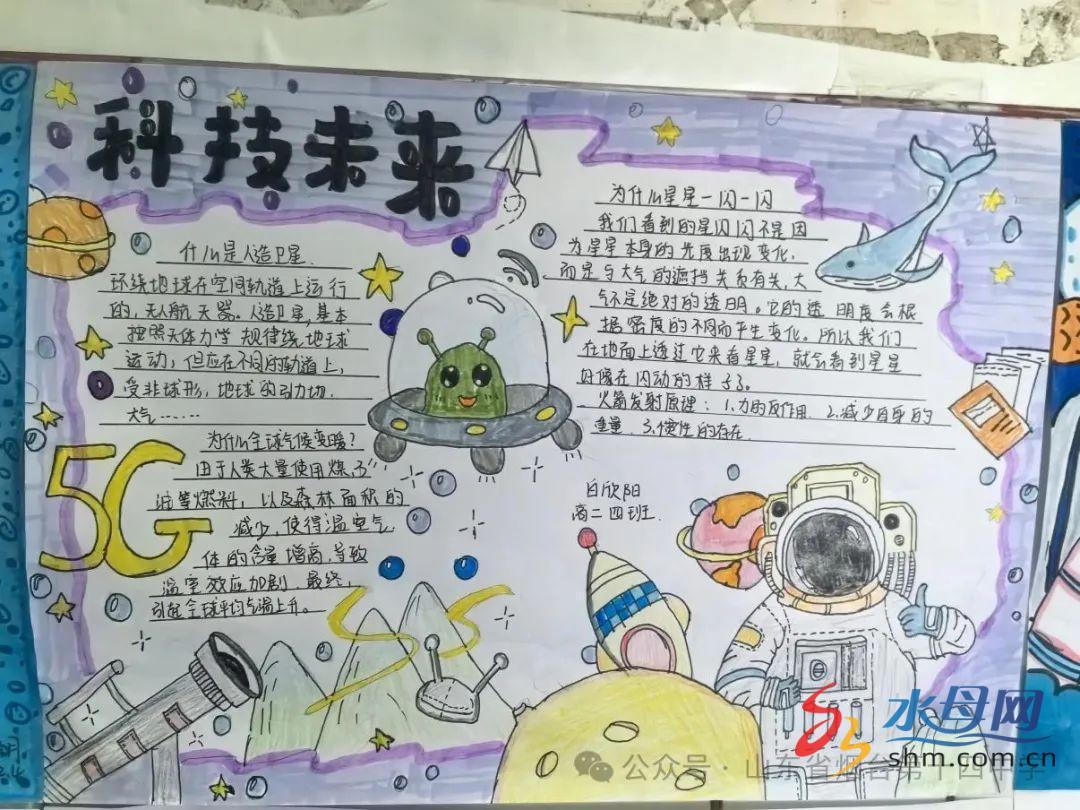 科技未来
什么是人造卫星.
环绕地球在空间轨道上运行
的,无人航天器。人造卫星,基本
按照天体力学 规律绕地球
运动,但应在不同的轨道上,
受非球形,地球的引力场.
大气……
为什么全球气候变暖?
由于人类大量使用煤
油等燃料,以及森林面积的
减少,使得温室气
体的含量增高,导致
温室效应加剧 最终,
引起全球平均气温上升。
5G
为什么星星一闪一闪
我们看到的星闪闪不是因
为星星本身的光度出现变化,
而是与大气的遮挡关负有关,大
气不是绝对的透明。它的透明度会根
据密度的不同而产生变化。所以我们
在地面上透过它来看星星,就会看到星星
好像在闪动的样子了。
火箭发射原理:1.力的反作用 2.减少自身的
重量 3.惯性的存在.
白欣阳
高二四班.
水母网
shm.com.cn
公众号·山东省烟台第十四中学